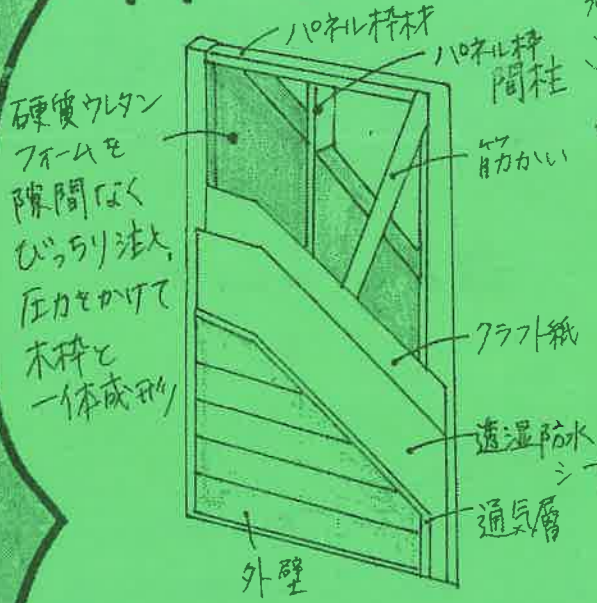 パネル枠材
パネル枠
間柱
硬質ウレタン
フォームを
隙間なく
びっちり注入、
圧力をかけて
木枠と
一体成形
筋かい
クラフト紙
透湿防水
シー
通気層
外壁